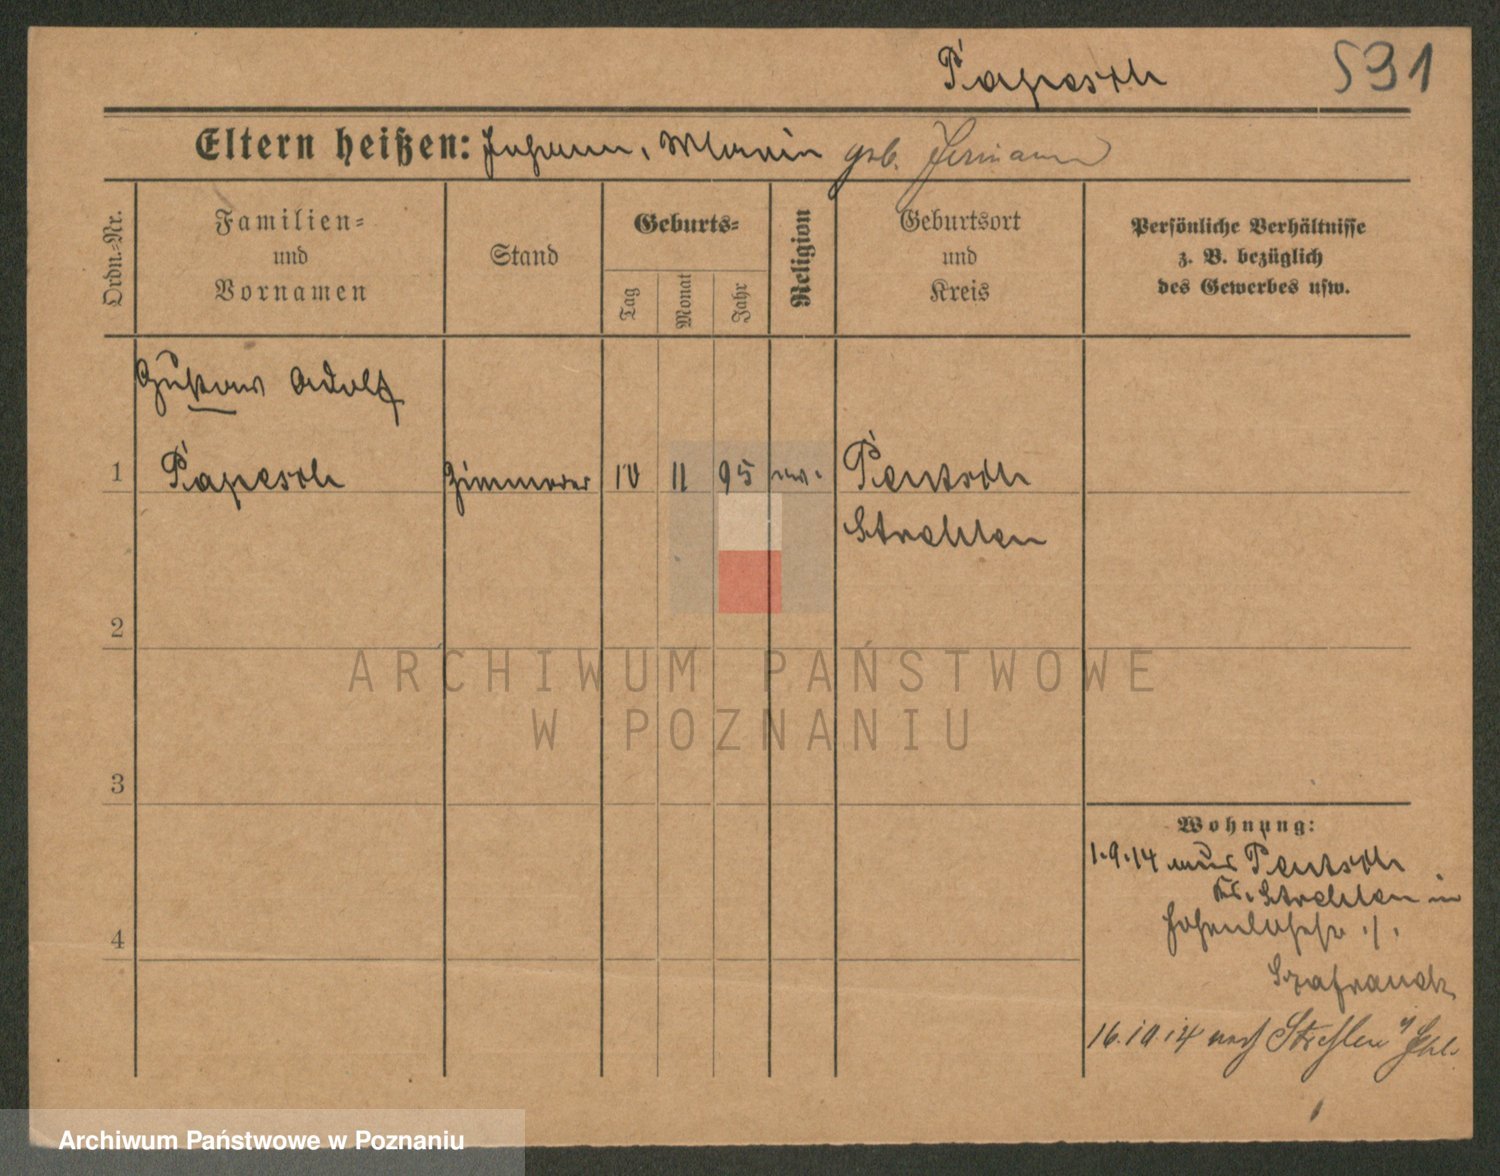 Papesch 531
Eltern heißen: Johann, Maria geb. Hermann
Ordn.-Nr.
Familien-
und
Vornamen
Stand
Geburts-
Tag
Monat
Jahr
Religion
Geburtsort
und
Kreis
Persönliche Verhältnisse
z. B. bezüglich
des Gewerbes usw.
Gustav Adolf
1 Papesch Zimmerer 10 11 95 ev. Pentsch
Strehlen
2
ARCHIWUM PAŃSTWOWE
W POZNANIU
3
Wohnung:
1.9.14 aus Pentsch
Kr. Strehlen in
4
Szafranek
16.10.14 nach Strehlen
Archiwum Państwowe w Poznaniu